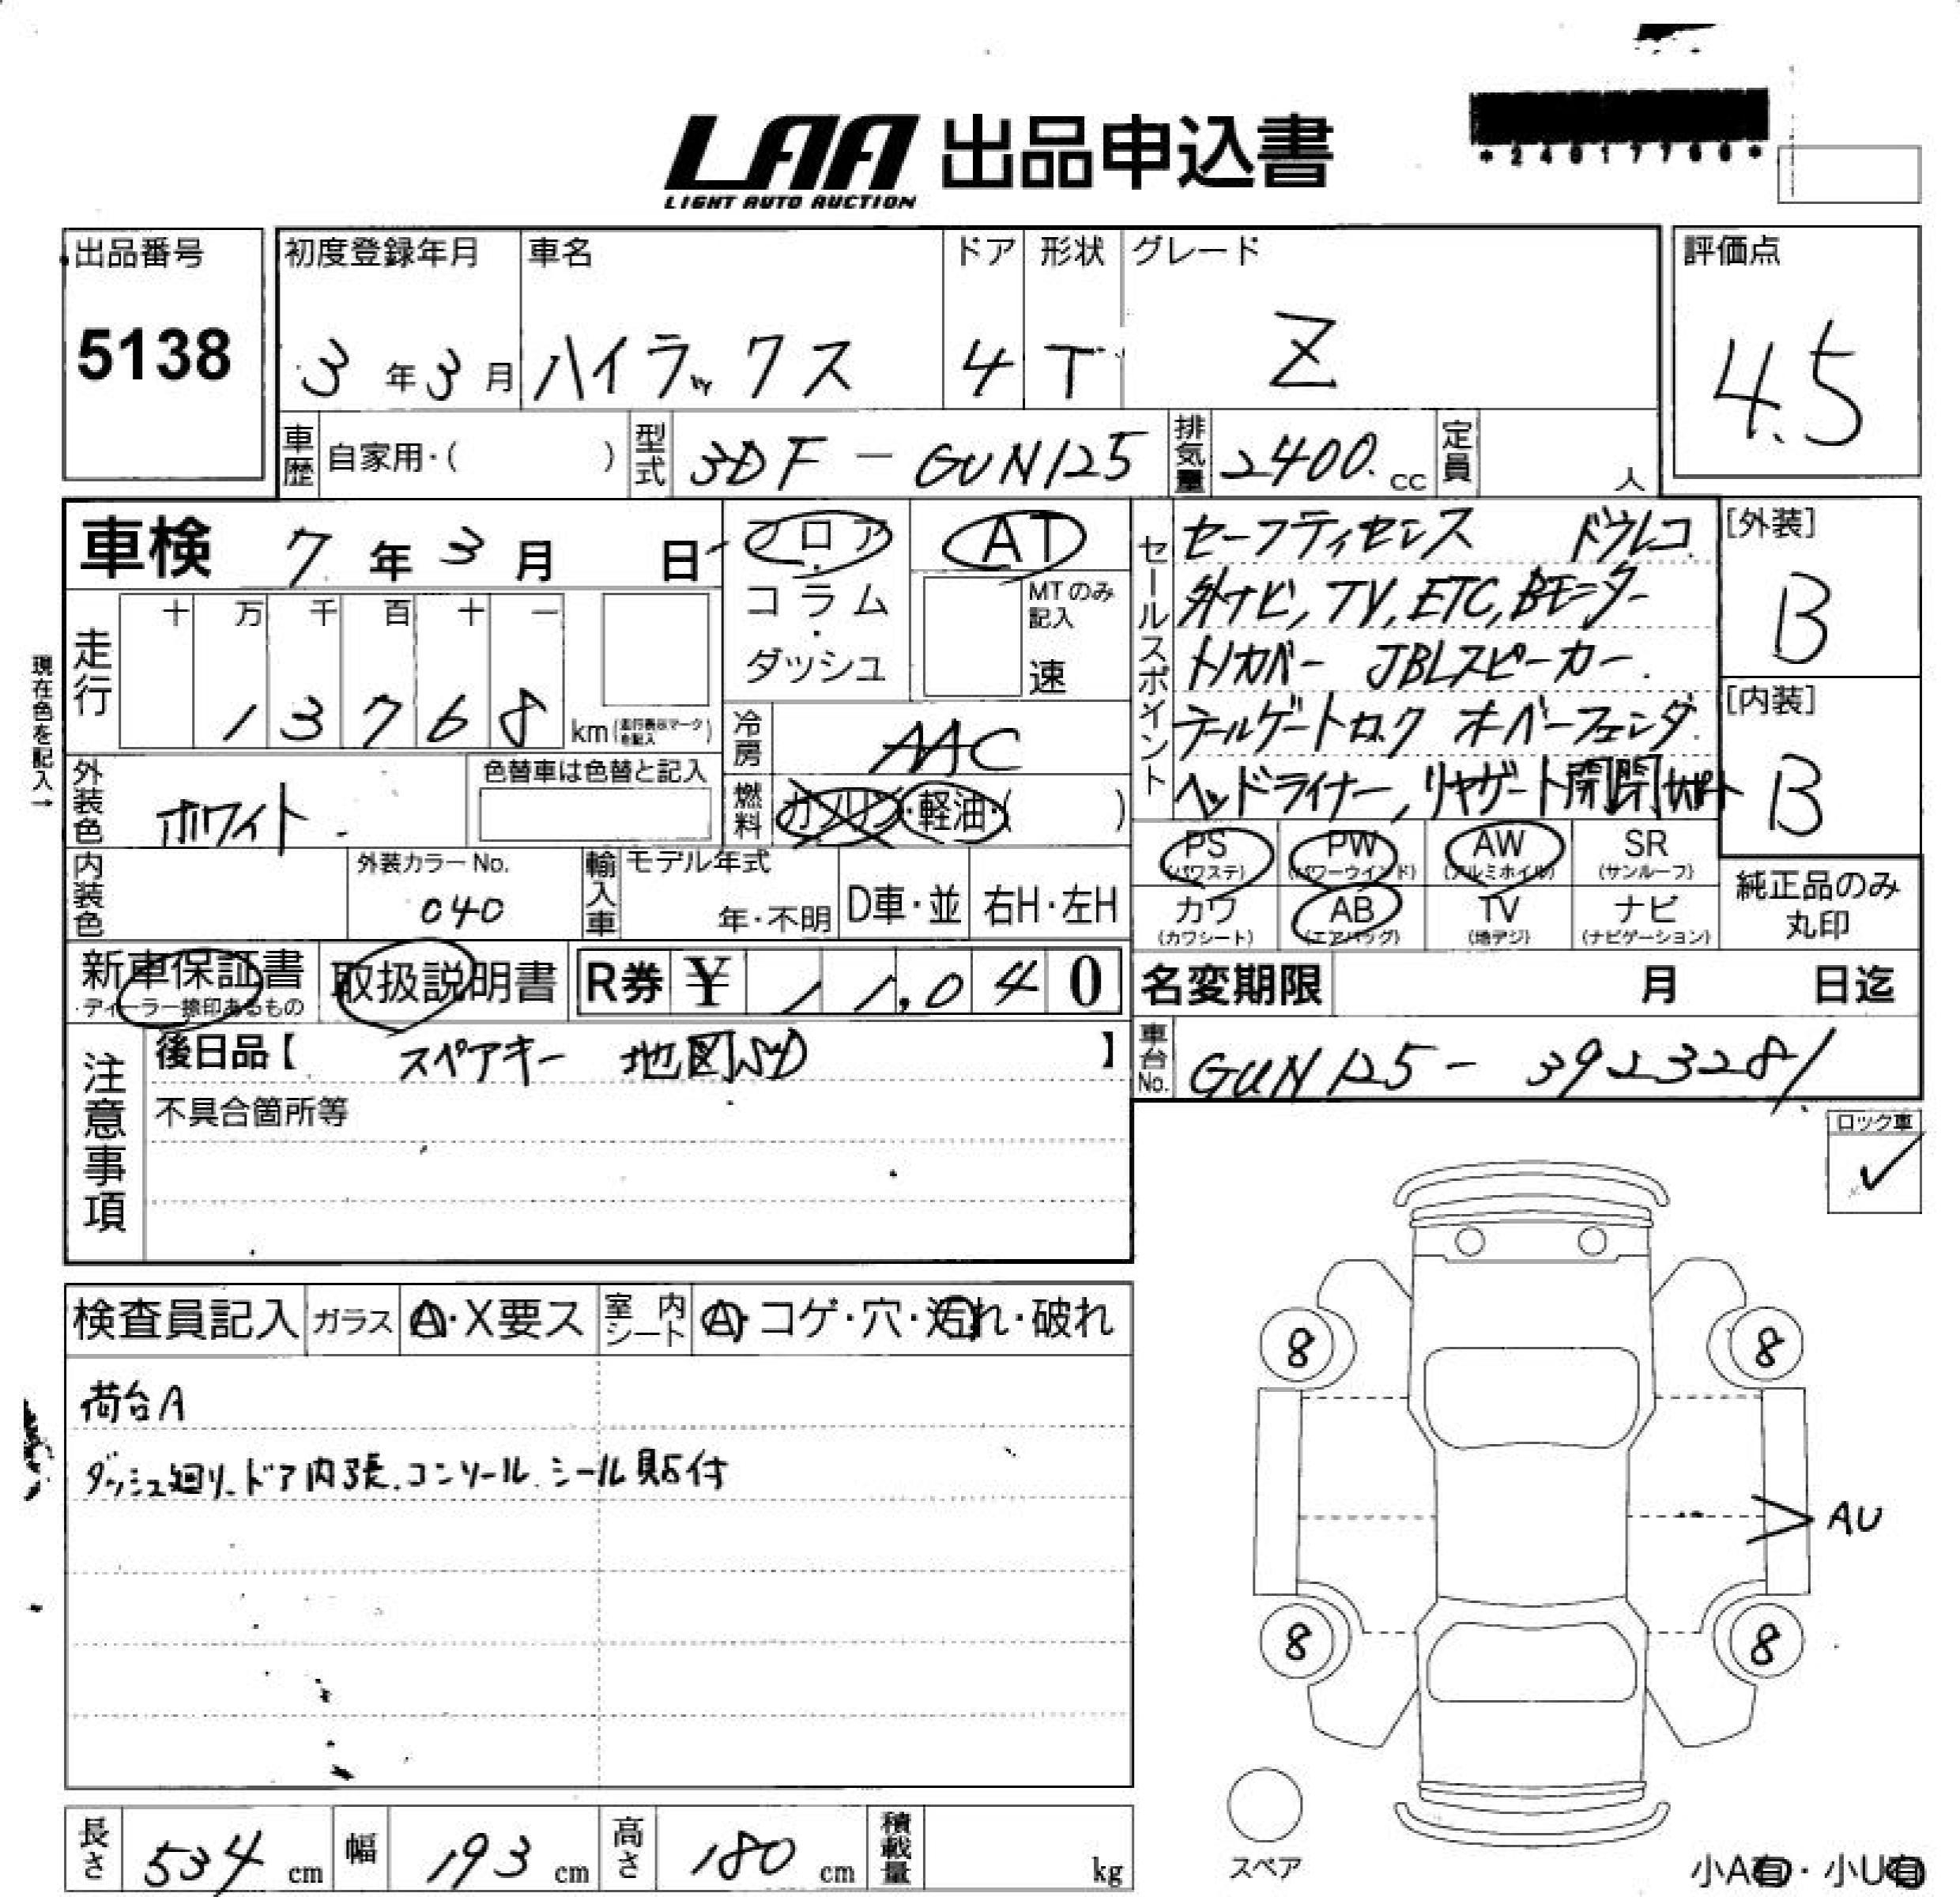 LAA 出品申込書
LIGHT AUTO AUCTION
出品番号 初度登録年月 車名 ドア 形状 グレード 評価点
5138 3年3月 ハイラックス 4 T Z 4.5
車歴 自家用・( ) 型式 3DF-GUN125 排気量 2400.cc 定員 人
車検 7年3月 日
フロア・コラム・ダッシュ
AT
MTのみ記入
速
セールスポイント
セーフティセンス ドラレコ
外ナビ, TV, ETC, Bモニター
トノカバー JBLスピーカー
テールゲートロック オーバーフェンダー
ヘッドライナー, リヤゲート開閉サポート
[外装]
B
[内装]
B
走行 十 万 千 百 十 一
13768 km (走行表示マークを記入)
現在色を記入→
冷房 AAC
外装色 ホワイト 色替車は色替と記入
燃料 ガソリン・軽油・( )
内装色 外装カラーNo. 040
輸入車 モデル年式 年・不明 D車・並 右H・左H
PS (パワステ) PW (パワーウインド) AW (アルミホイル) SR (サンルーフ)
カワ (カワシート) AB (エアバッグ) TV (地デジ) ナビ (ナビゲーション)
純正品のみ丸印
新車保証書 ディーラー捺印あるもの 取扱説明書 R券 ¥ 11,040
名変期限 月 日迄
注意事項
後日品【 スペアキー 地図SD 】
不具合箇所等
車台No. GUN125-3923281
ロック車 ✓
検査員記入 ガラス A・X要ス 室内シート A・コゲ・穴・汚れ・破れ
荷台A
ダッシュ廻り、ドア内張、コンソール、シール貼付
8 8
AU
8 8
スペア
小A有・小U有
長さ 534 cm 幅 193 cm 高さ 180 cm 積載量 kg